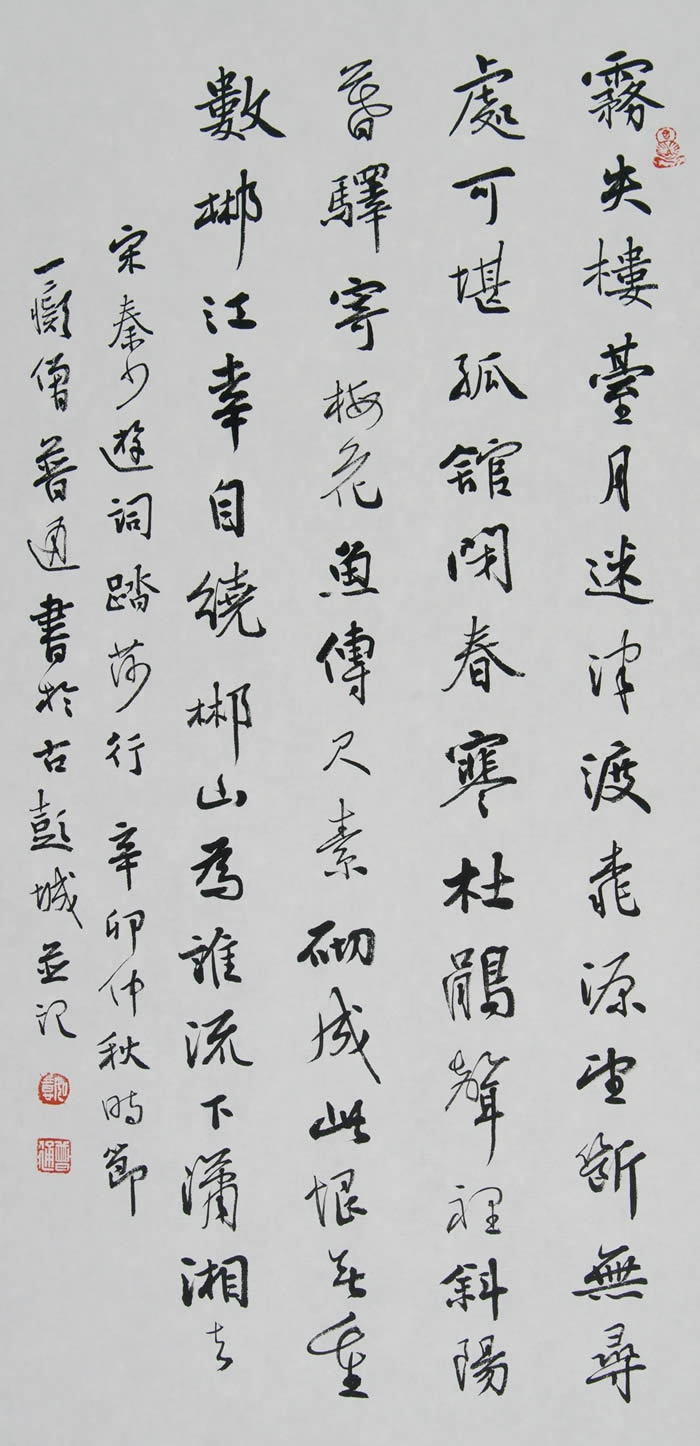 霧失樓臺月迷津渡桃源望斷無尋
處可堪孤舘閉春寒杜鵑聲裡斜陽
暮驛寄梅花魚傳尺素砌成此恨无重
數郴江幸自繞郴山為誰流下瀟湘去
宋秦少遊詞踏莎行 辛卯仲秋時節
一僧普通書於古彭城並記
普通